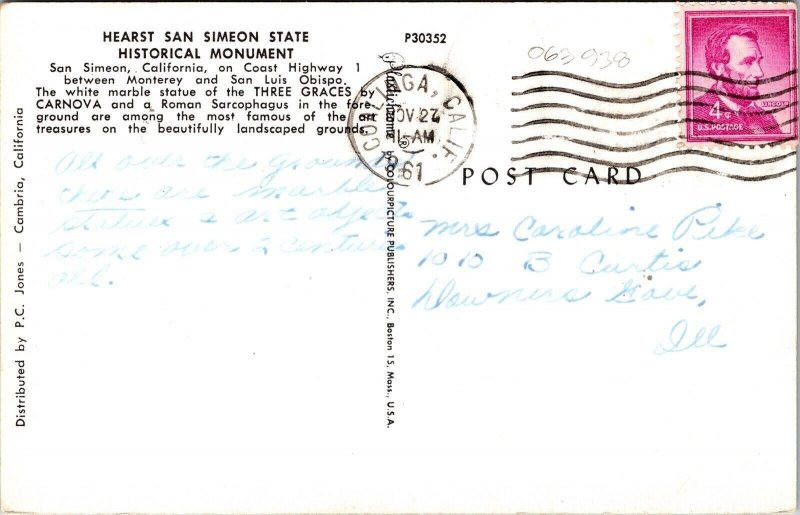 HEARST SAN SIMEON STATE
HISTORICAL MONUMENT
San Simeon, California, on Coast Highway 1
between Monterey and San Luis Obispo.
The white marble statue of the THREE GRACES by
CARNOVA and a Roman Sarcophagus in the fore
ground are among the most famous of the art
treasures on the beautifully landscaped grounds.
All over the grounds
there are marble
statues & art objects
some over 2 centuries
old.
Distributed by P.C. Jones — Cambria, California
P30352
Plastichrome ® by COLOURPICTURE PUBLISHERS, INC., Boston 15, Mass., U.S.A.
063938
CALIF.
NOV 27
11-AM
1961
LINCOLN
4¢
U.S. POSTAGE
POST CARD
Mrs Caroline Pike
1010 B Curtis
Downers Grove,
Ill